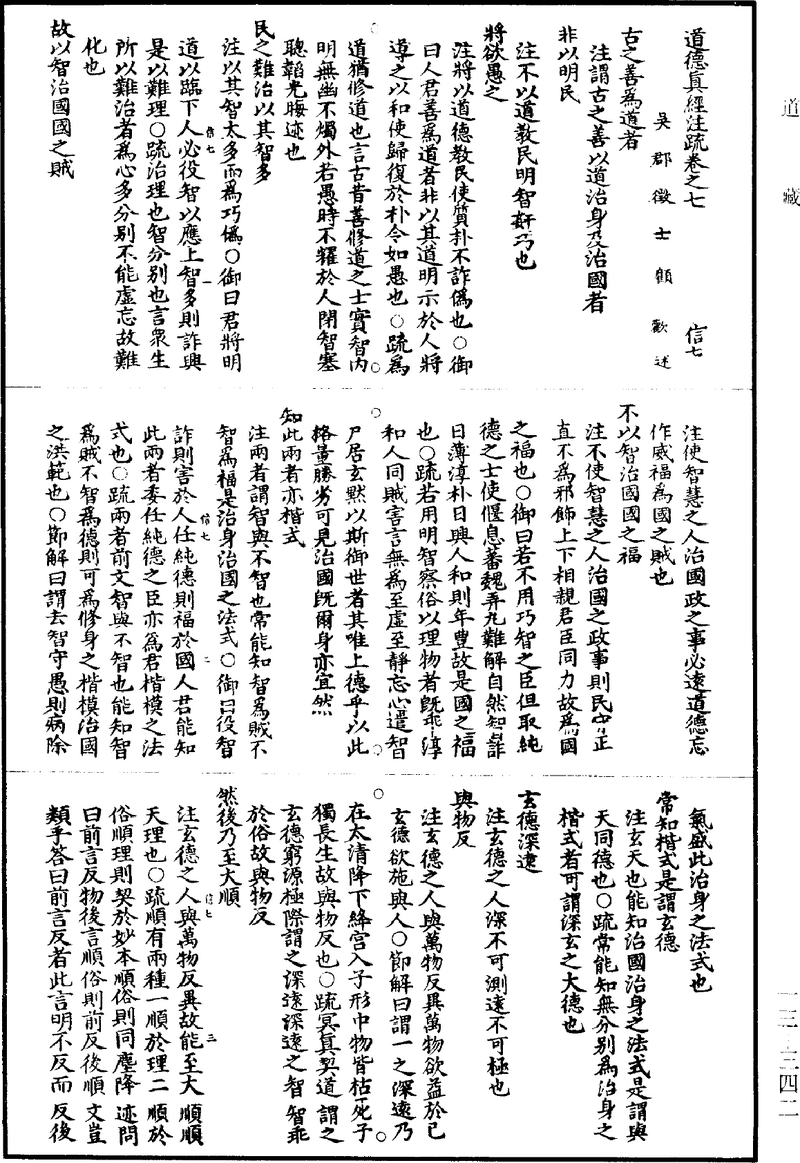 道藏
道德真經注疏卷之七　信七
吳郡徵士顧歡述
古之善為道者
注謂古之善以道治身及治國者
非以明民
注不以道教民明智姧巧也
將欲愚之
注將以道德教民使質朴不詐偽也○御
曰人君善為道者非以其道明示於人將
導之以和使歸復於朴令如愚也○疏為
道猶修道也言古昔善修道之士實智內
明無幽不燭外若愚時不耀於人閉智塞
聰韜光晦迹也
民之難治以其智多
注以其智太多而為巧偽○御曰君將明
道以臨下人必役智以應上智多則詐興
是以難理○疏治理也智分別也言衆生
所以難治者為心多分別不能虛忘故難
化也
故以智治國國之賊
信七　一
注使智慧之人治國政之事必遠道德忘
作威福為國之賊也
不以智治國國之福
注不使智慧之人治國之政事則民守正
直不為邪飾上下相親君臣同力故為國
之福也○御曰若不用巧智之臣但取純
德之士使偃息蕃魏弄丸難解自然智詐
日薄淳朴日興人和則年豊故是國之福
也○疏若用明智察俗以理物者既乖淳
和人同賊害言無為至虛至靜忘心遣智
尸居玄默以斯御世者其唯上德乎以此
格量勝劣可見治國既爾身亦宜然
知此兩者亦楷式
注兩者謂智與不智也常能知智為賊不
智為福是治身治國之法式○御曰役智
詐則害於人任純德則福於國人君能知
此兩者委任純德之臣亦為君楷模之法
式也○疏兩者前文智與不智也能知智
為賊不智為德則可為修身之楷模治國
之洪範也○節解曰謂去智守愚則病除
信七　二
氣盛此治身之法式也
常知楷式是謂玄德
注玄天也能知治國治身之法式是謂與
天同德也○疏常能知無分別為治身之
楷式者可謂深玄之大德也
玄德深遠
注玄德之人深不可測遠不可極也
與物反
注玄德之人與萬物反異萬物欲益於已
玄德欲施與人○節解曰謂一之深遠乃
在太清降下絳宮入子形中物皆枯死子
獨長生故與物反也○疏冥真契道謂之
玄德窮源極際謂之深遠深遠之智智乖
於俗故與物反
然後乃至大順
注玄德之人與萬物反異故能至大順順
天理也○疏順有兩種一順於理二順於
俗順理則契於妙本順俗則同塵降迹問
曰前言反物後言順俗則前反後順文豈
類乎答曰前言反者此言明不反而反後
信七　三
一三—三四二